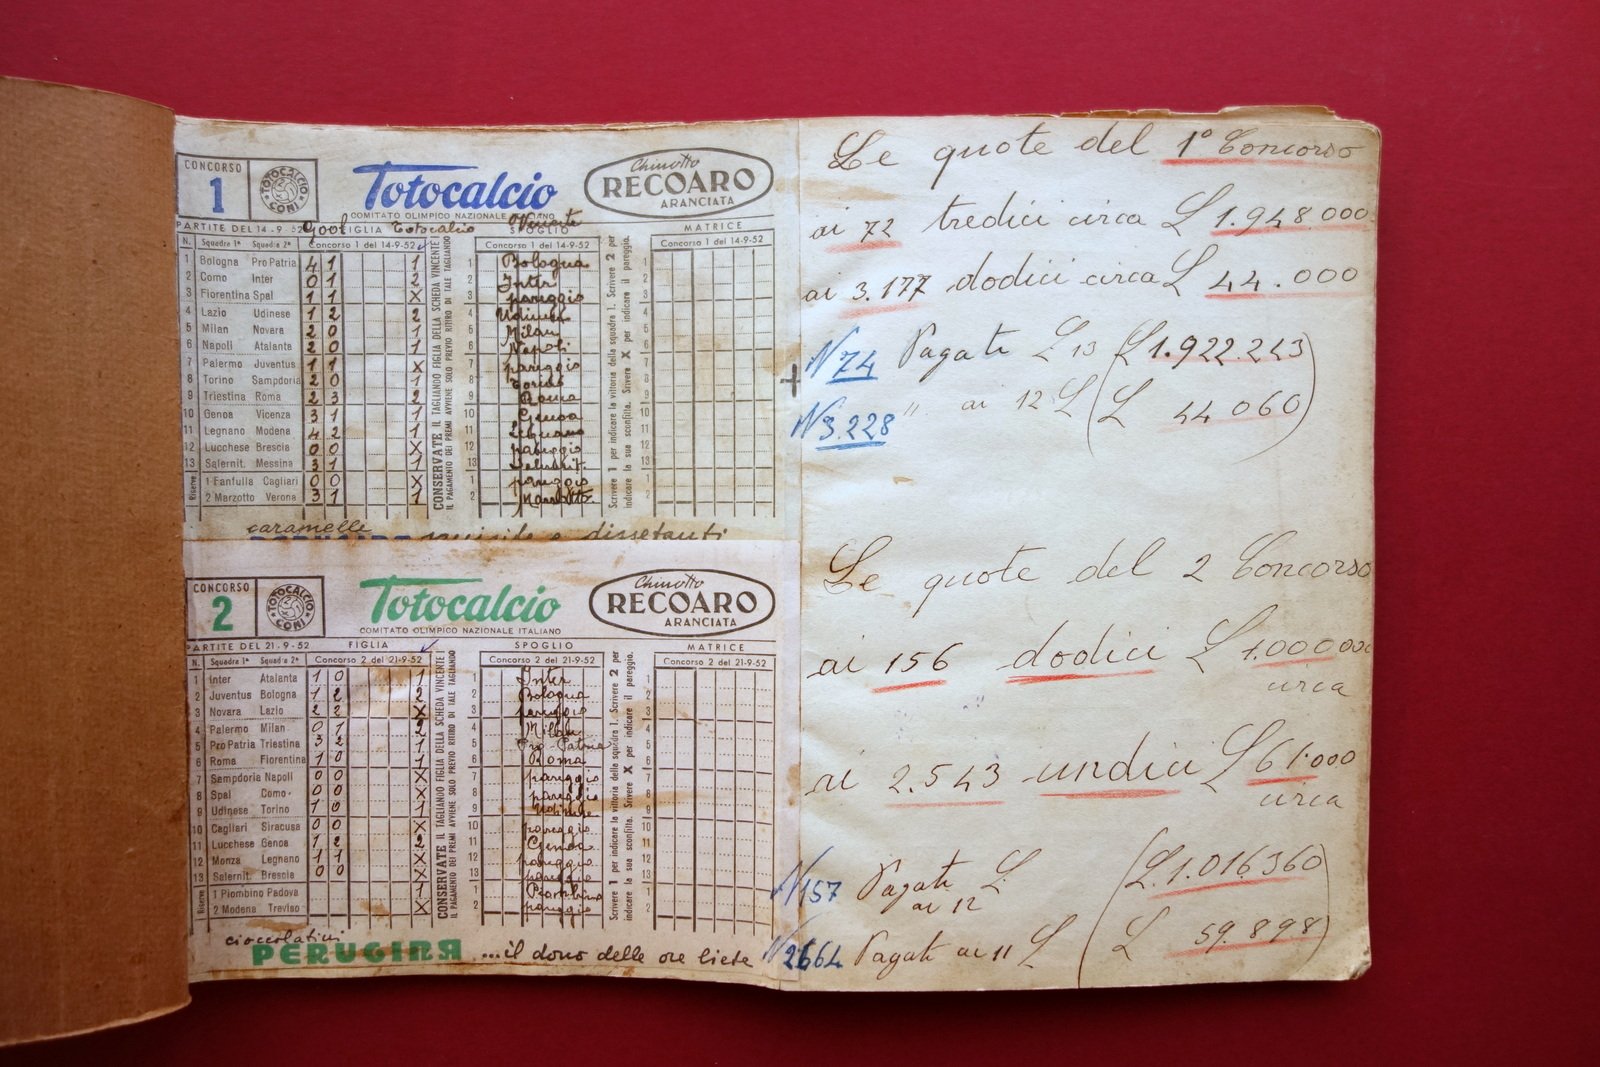 CONCORSO
1
TOTOCALCIO CONI
Totocalcio
COMITATO OLIMPICO NAZIONALE ITALIANO
Chinotto
RECOARO
ARANCIATA
PARTITE DEL 14-9-52 FIGLIA SPOGLIO MATRICE
Gool Totocalcio Vincente
N. Squadra 1ª Squadra 2ª Concorso 1 del 14-9-52 Concorso 1 del 14-9-52 Concorso 1 del 14-9-52
1 Bologna Pro Patria 4 1 1 1 Bologna 1
2 Como Inter 0 1 2 2 Inter 2
3 Fiorentina Spal 1 1 X 3 pareggio 3
4 Lazio Udinese 1 2 2 4 Udinese 4
5 Milan Novara 2 0 1 5 Milan 5
6 Napoli Atalanta 2 0 1 6 Napoli 6
7 Palermo Juventus 1 1 X 7 pareggio 7
8 Torino Sampdoria 2 0 1 8 Torino 8
9 Triestina Roma 2 3 2 9 Roma 9
10 Genoa Vicenza 3 1 1 10 Genoa 10
11 Legnano Modena 4 2 1 11 Legnano 11
12 Lucchese Brescia 0 0 X 12 pareggio 12
13 Salernit. Messina 3 1 1 13 Salernit. 13
Riserve
1 Fanfulla Cagliari 0 0 X 1 pareggio 1
2 Marzotto Verona 3 1 1 2 Marzotto 2
CONSERVATE IL TAGLIANDO FIGLIA DELLA SCHEDA VINCENTE
IL PAGAMENTO DEI PREMI AVVIENE SOLO PREVIO RITIRO DI TALE TAGLIANDO
Scrivere 1 per indicare la vittoria della squadra 1. Scrivere 2 per
indicare la sua sconfitta. Srivere X per indicare il pareggio.
caramelle
dissetanti
CONCORSO
2
TOTOCALCIO CONI
Totocalcio
COMITATO OLIMPICO NAZIONALE ITALIANO
Chinotto
RECOARO
ARANCIATA
PARTITE DEL 21-9-52 FIGLIA SPOGLIO MATRICE
N. Squadra 1ª Squadra 2ª Concorso 2 del 21-9-52 Concorso 2 del 21-9-52 Concorso 2 del 21-9-52
1 Inter Atalanta 1 0 1 1 Inter 1
2 Juventus Bologna 1 2 2 2 Bologna 2
3 Novara Lazio 2 2 X 3 pareggio 3
4 Palermo Milan 0 1 2 4 Milan 4
5 Pro Patria Triestina 3 2 1 5 Pro-Patria 5
6 Roma Fiorentina 1 0 1 6 Roma 6
7 Sempdoria Napoli 0 0 X 7 pareggio 7
8 Spal Como 0 0 X 8 pareggio 8
9 Udinese Torino 1 0 1 9 Udinese 9
10 Cagliari Siracusa 0 0 X 10 pareggio 10
11 Lucchese Genoa 1 2 2 11 Genoa 11
12 Monza Legnano 1 1 X 12 pareggio 12
13 Salernit. Brescia 0 0 X 13 pareggio 13
Riserve
1 Piombino Padova 1 1 Piombino 1
2 Modena Treviso X 2 pareggio 2
CONSERVATE IL TAGLIANDO FIGLIA DELLA SCHEDA VINCENTE
IL PAGAMENTO DEI PREMI AVVIENE SOLO PREVIO RITIRO DI TALE TAGLIANDO
Scrivere 1 per indicare la vittoria della squadra 1. Scrivere 2 per
indicare la sua sconfitta. Srivere X per indicare il pareggio.
cioccolatini
PERUGINA ...il dono delle ore liete
Le quote del 1° Concorso
ai 72 tredici circa £ 1.948.000
ai 3.177 dodici circa £ 44.000
N 74 Pagate £ 13 (£ 1.922.223)
N 3.228 " ai 12 £ (£ 44 060)
Le quote del 2 Concorso
ai 156 dodici £ 1.000000
circa
ai 2.543 undici £ 61.000
circa
N 157 Pagate £ (£. 1.016360)
ai 12
N 2664 Pagate ai 11 £ (£ 59.898)